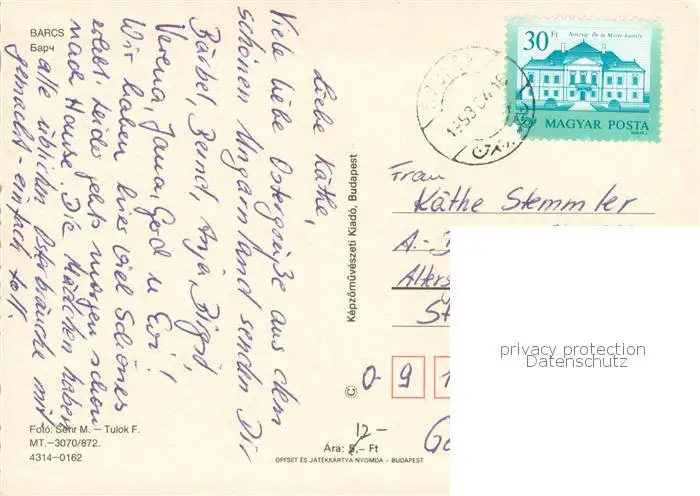 BARCS
Барч
Liebe Käthe,
Viele liebe Ostergrüße aus dem
schönen Ungarnland senden Dir
Bärbel, Bernd, Anja, Birgit
Verena, Jana, Gerd u. Evi!
Wir haben hier viel Schönes
erlebt. Leider geht's morgen schon
nach Hause. Die Mädchen haben
alle üblichen Osterbräuche mit
gemacht - einfach toll.
Fotó: Sehr M. — Tulok F.
MT.—3070/872.
4314-0162
© Képzőművészeti Kiadó, Budapest
30 Ft
Noszvaj. De la Motte-kastély
MAGYAR POSTA
Frau
Käthe Stemmler
A.-
Alters
St
0-9 1
12-
Ára: 5,- Ft
OFFSET ÉS JÁTÉKKÁRTYA NYOMDA - BUDAPEST
privacy protection
Datenschutz